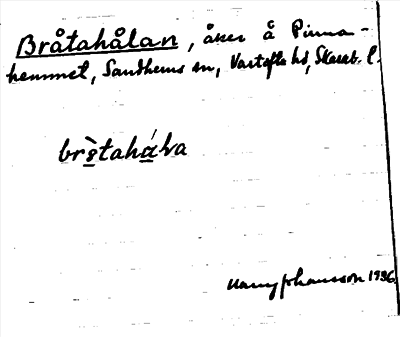 Bråtahålan, åker å Pirna-
hemmet, Sandhems sn, Vartofta hd, Skarab. l.
Harry Johansson 1936.